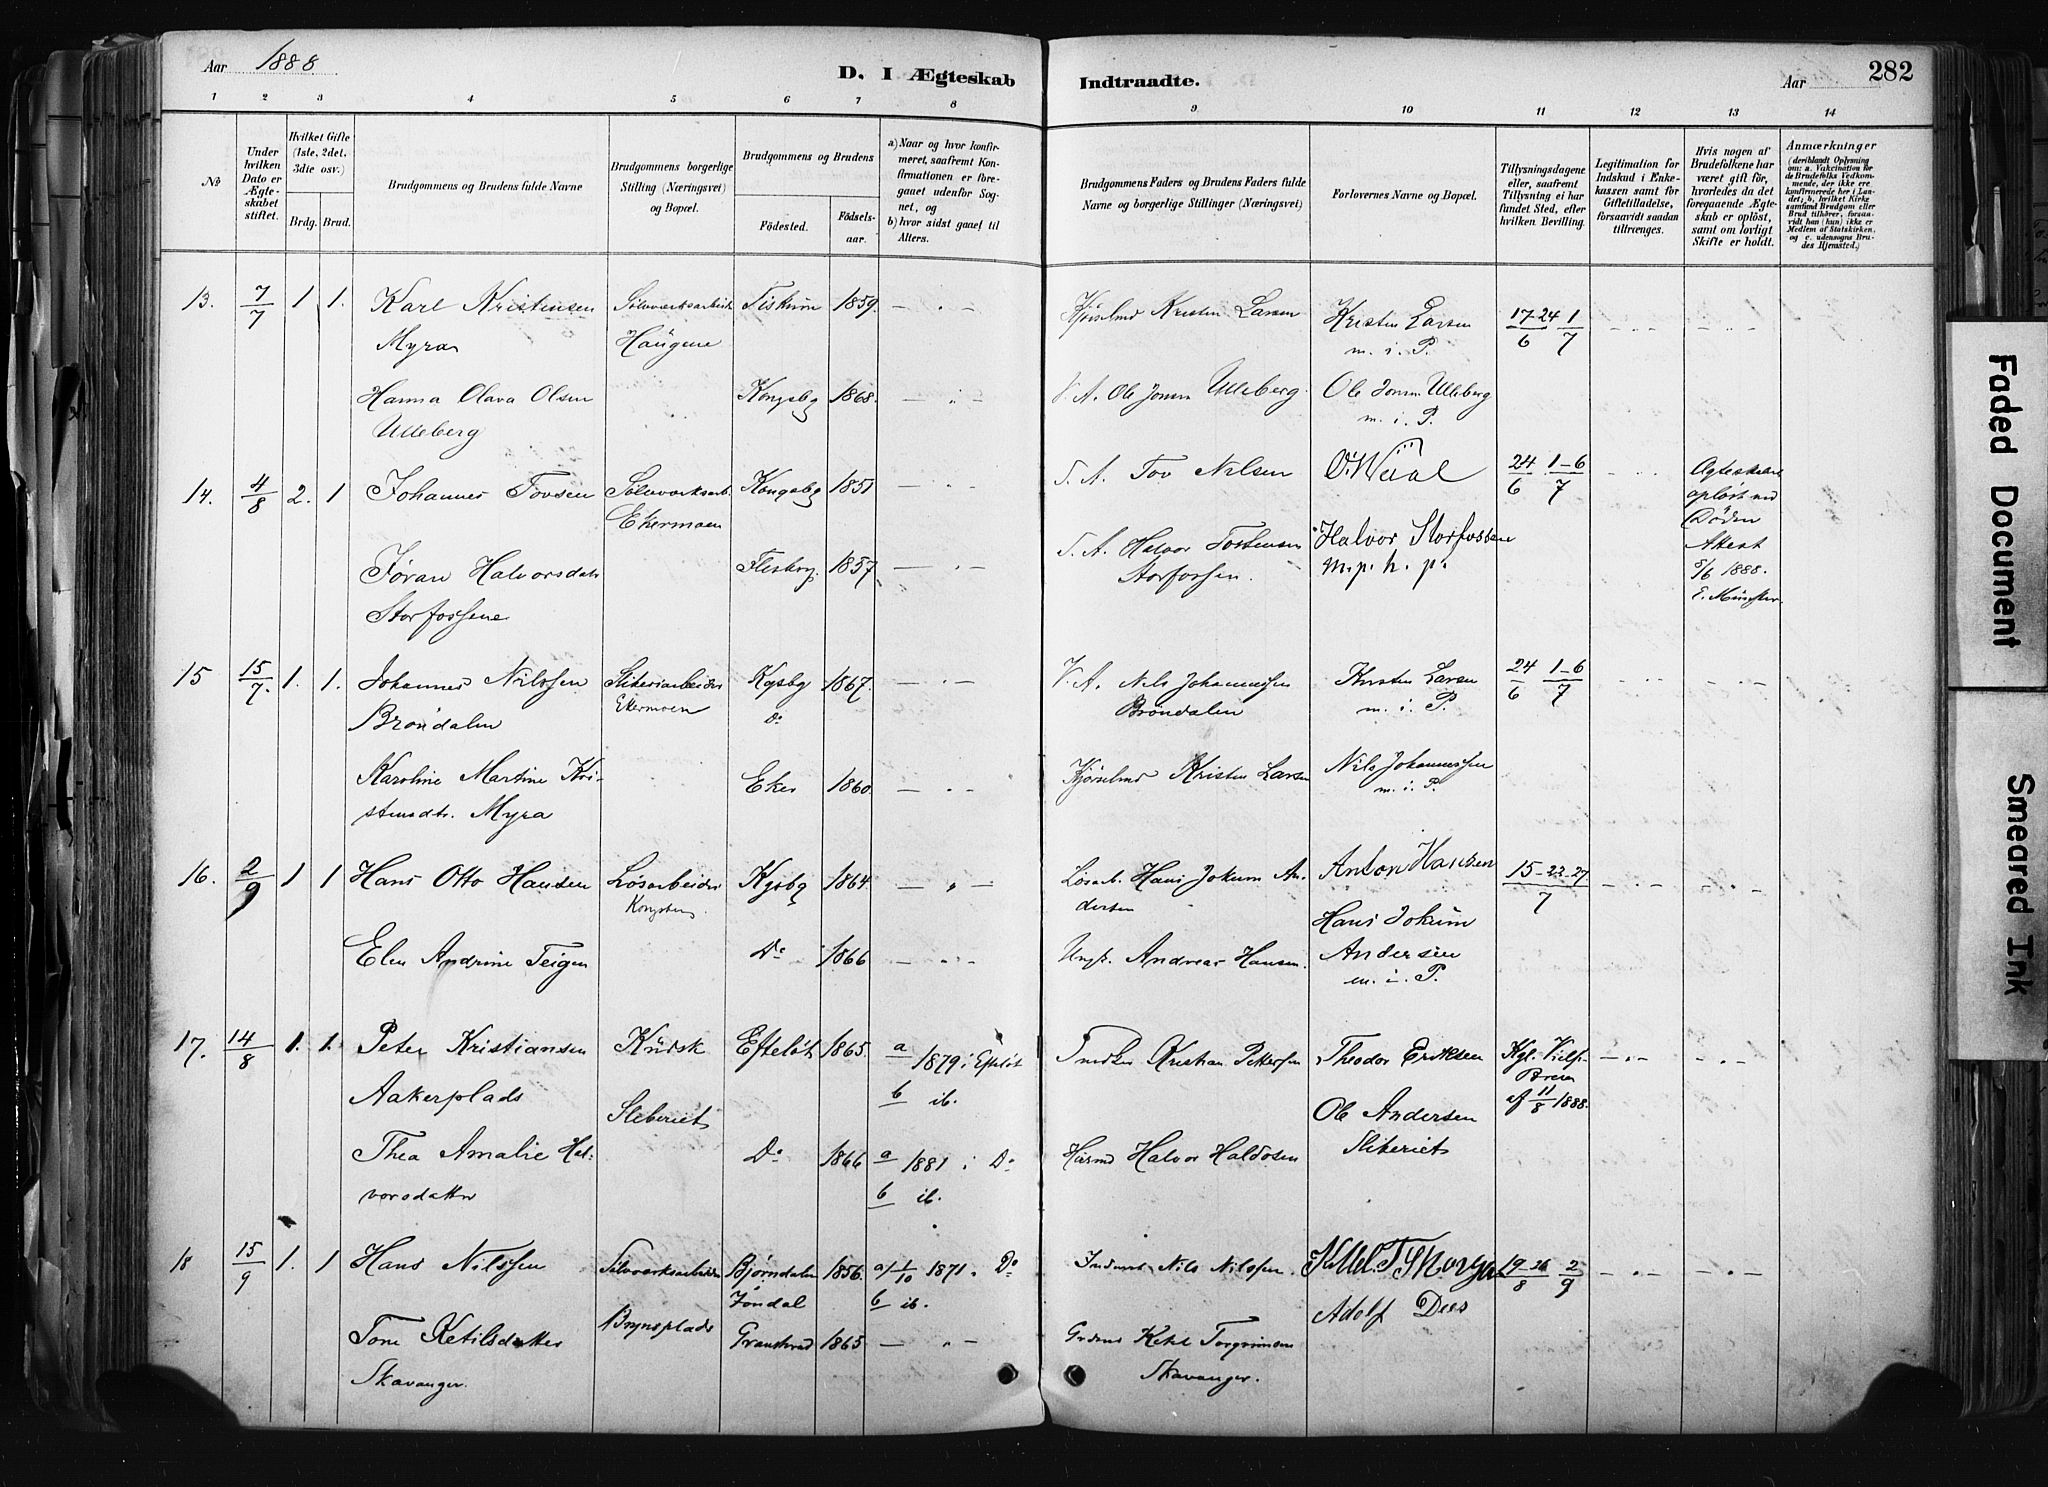 Aar 1888
D. I Ægteskab Indtraadte.
Aar
282
1 2 3 4 5 6 7 8 9 10 11 12 13 14
No
Under hvilken Dato er Ægteskabet stiftet.
Hvilket Gifte (1ste, 2det, 3die osv.)
Brdg. Brud.
Brudgommens og Brudens fulde Navne
Brudgommens borgerlige Stilling (Næringsvei) og Bopæl.
Brudgommens og Brudens
Fødested. Fødselsaar.
a) Naar og hvor konfirmeret, saafremt Konfirmationen er foregaaet udenfor Sognet, og
b) hvor sidst gaaet til Alters.
Brudgommens Faders og Brudens Faders fulde Navne og borgerlige Stillinger (Næringsvei)
Forlovernes Navne og Bopæl.
Tillysningsdagene eller, saafremt Tillysning ei har fundet Sted, efter hvilken Bevilling.
Legitimation for Indskud i Enkekassen samt for Giftetilladelse, forsaavidt saadan tiltrænges.
Hvis nogen af Brudefolkene har været gift før, hvorledes da det foregaaende Ægteskab er opløst, samt om lovligt Skifte er holdt.
Anmærkninger
(deriblandt Oplysning om: a. Vakcination for de Brudefolks Vedkommende, der ikke ere konfirmerede her i Landet; b, hvilket Kirkesamfund Brudgom eller Brud tilhører, forsaavidt han (hun) ikke er Medlem af Statskirken, og c. udensogns Brudes Hjemsted.)
13. 7/7 1 1. Karl Kristensen Sølvværksarbeid. Fiskum 1859. Kjørselmd Kristen Larsen Kristen Larsen 17-24/6 1/7
Myra Haugene m. i. P.
Hanna Olava Olsen Kongsbg 1868. V. A. Ole Jonsen Ulleberg. Ole Jonsen Ulleberg
Ulleberg m. i. P.
14. 4/8 2. 1 Johannes Tovsen Sølvværksarb. Kongsbg 1851 S. A. Tov Nilsen 24/6 1-6/7 Ægteskabet
Ekermoen opløst ved
Døden
Jøran Halvorsdatr Flesberg. 1857. S. A. Halvor Tostensen Halvor Storfossen Attest
Storfossene Storfossen. m. p. h. p. 5/6 1888.
E. Münster.
15 15/7. 1. 1. Johannes Nilssen Sliberiarbeider Kgsbg 1867. V. A. Nils Johannessen Kristen Larsen 24/6 1-6/7
Brøndalen Ekermoen Do Brøndalen m. i. P.
Karoline Martine Kri- Eker 1860. Kjørselmd Kristen Larsen Nils Johannessen
stensdtr. Myra m. i. P.
16. 2/9 1 1 Hans Otto Hansen Løsarbeider Kgsbg 1864. Løsarb. Hans Jokum An- Anton Hansen 15-22-27/7
Kongsberg dersen Hans Jokum
Elen Andrine Teigen Do 1866 Andreas Hansen. Andersen
m. i. P.
17. 14/8 1. 1. Peter Kristiansen Kudsk Efteløt 1865. a 1879 i Efteløt Snedker Kristian Pettersen Theodor Eriksen Kgl.
Aakerplads Sliberiet b ib. Ole Andersen af 11/8 1888.
Thea Amalie Hal- Do 1866 a 1881 i Do Halvor Sliberiet
vorsdatter b ib.
18 15/9 1. 1 Hans Nilssen Sølvværksarbeider Bjørndalen 1856. a/ 1/10 1871. Do Inderst Nils Nilssen. 19-26/8 2/9
Jondal b ib. Adolf Dees
Tone Ketilsdatter Brynsplads Gransherad 1865 Grdmd Ketil Torgrimsen
Skavanger. Skavanger.
Faded Document
Smeared Ink